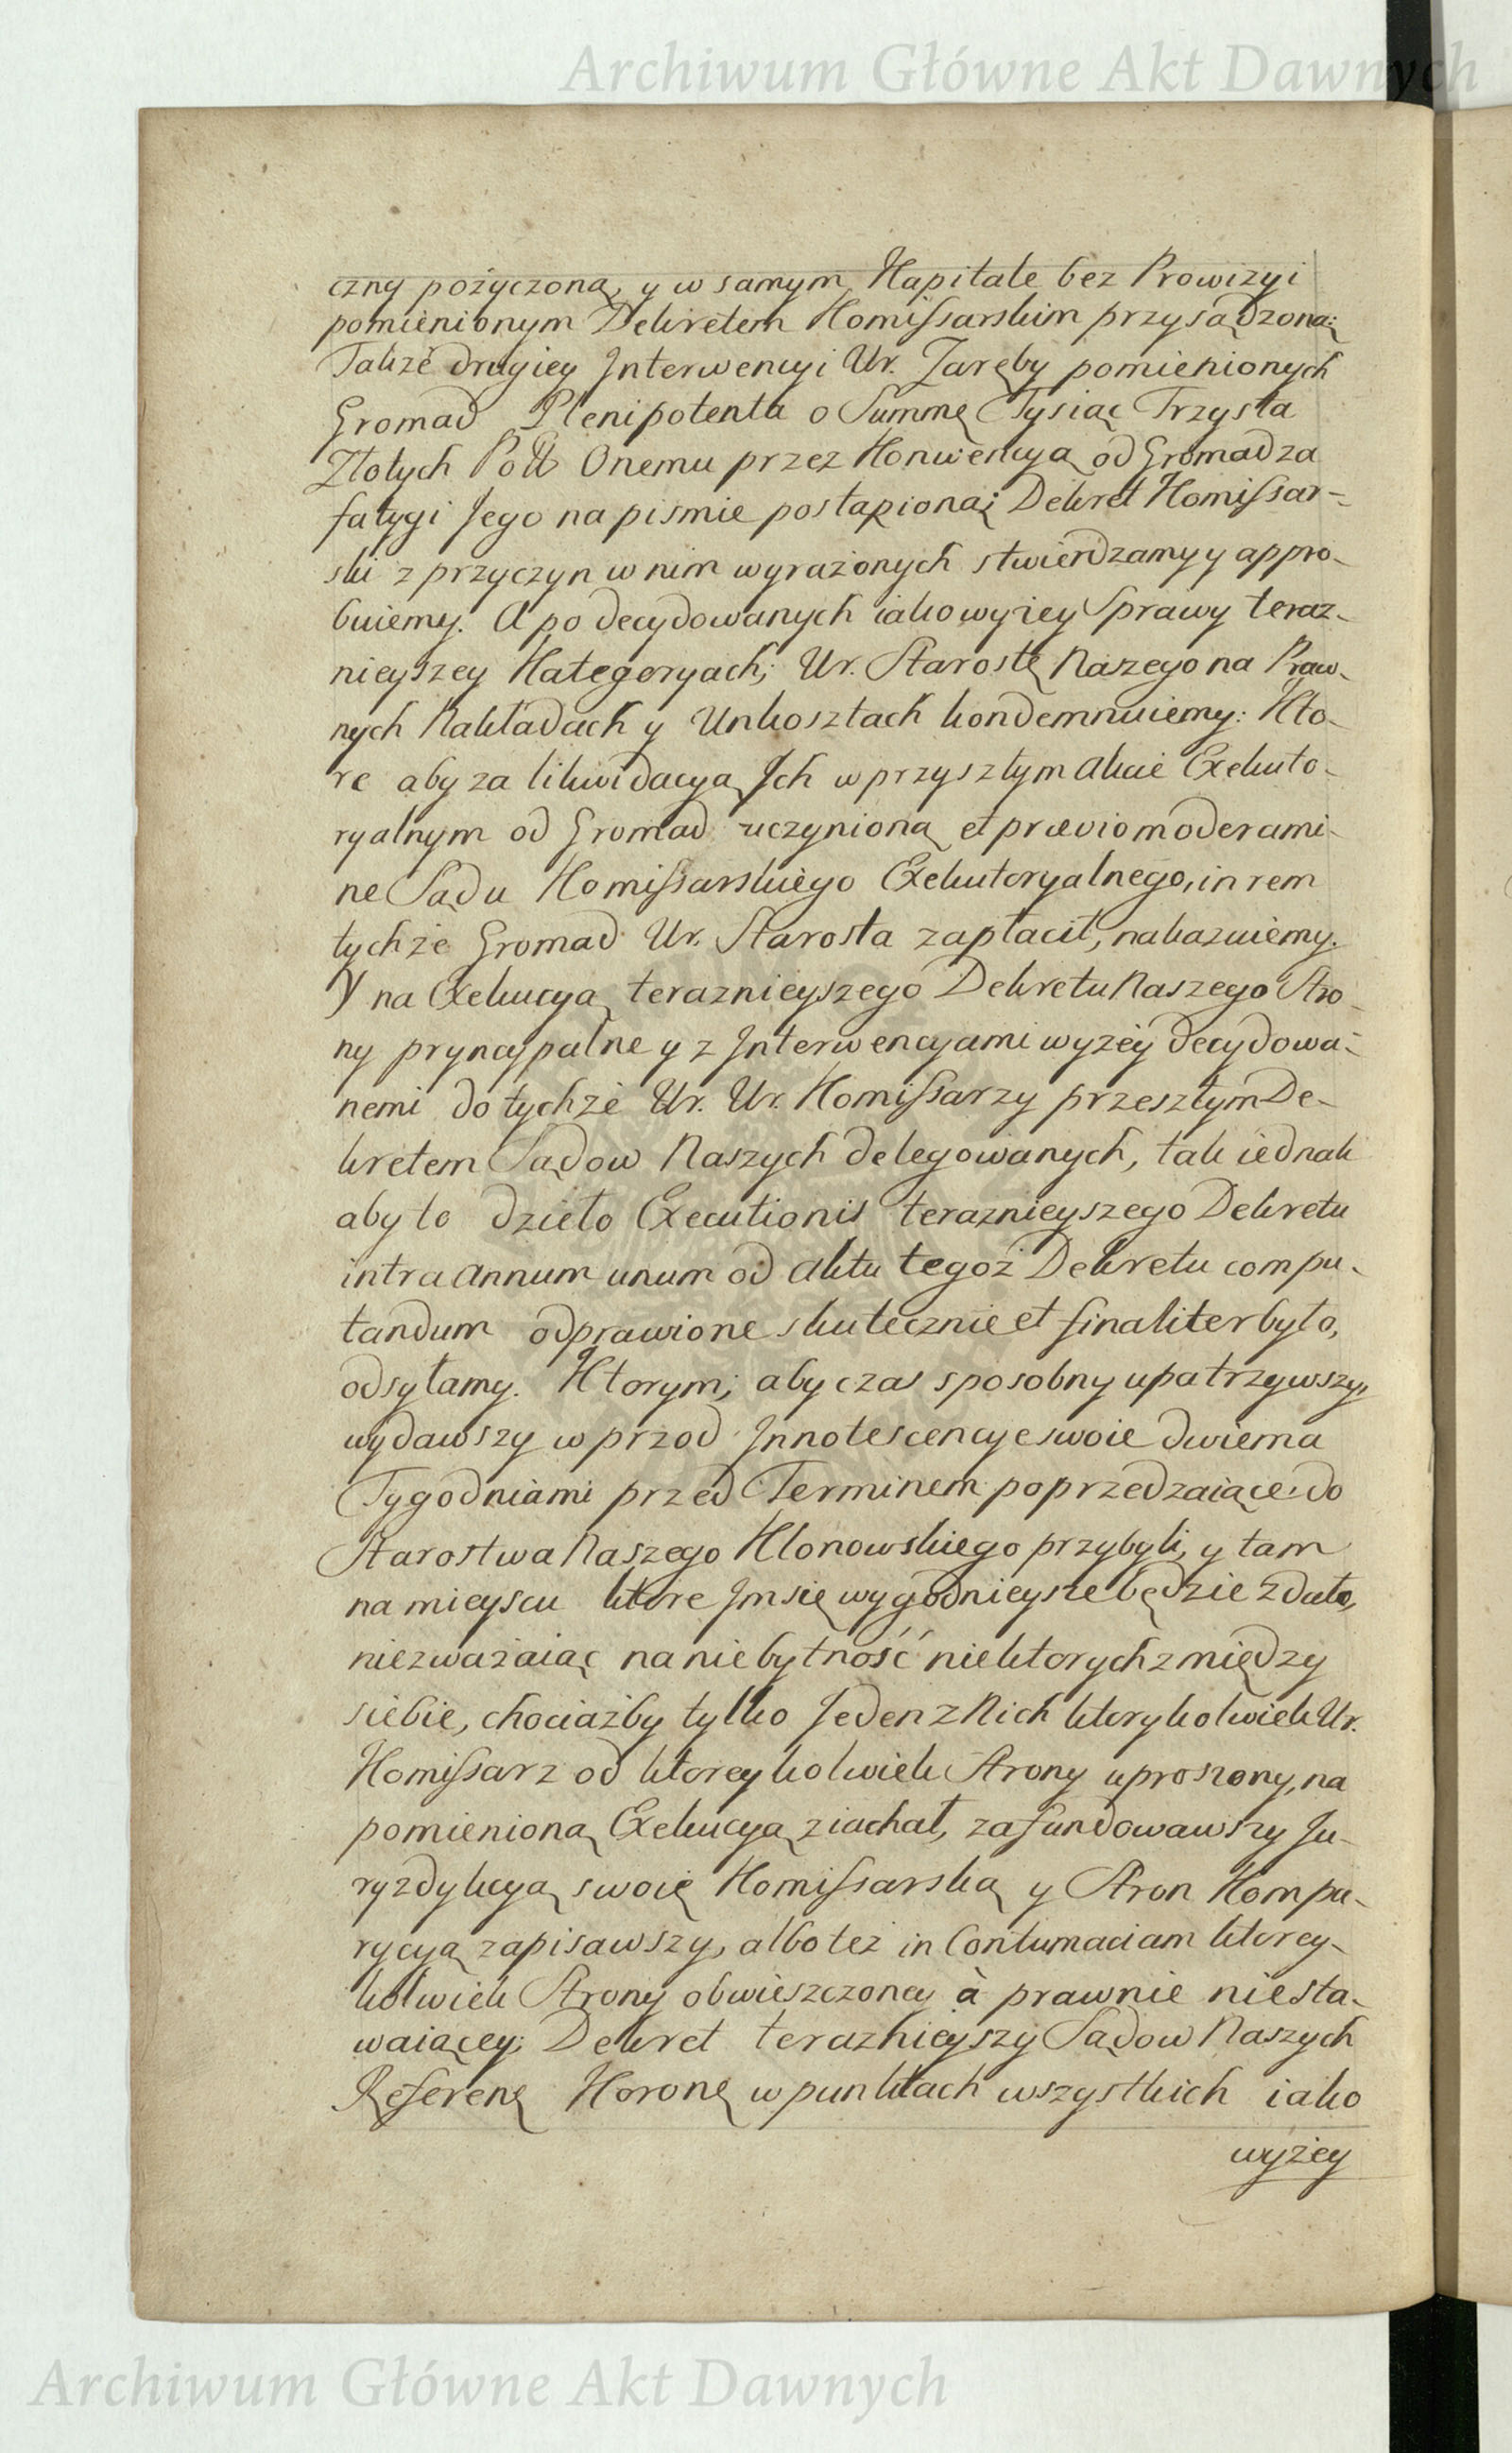 Archiwum Główne Akt Dawnych
czny pożyczoną, y w samym Kapitale bez Prowizyi
pomienionym Dekretem Komissarskim przysądzoną:
Także drugiey Interwencyi Ur. Zaręby pomienionych
Gromad Plenipotenta o Summę Tysiąc Trzysta
Złotych Poll. Onemu przez Konwencyą od Gromad za
fatygi Jego na pismie postąpioną; Dekret Komissar-
ski z przyczyn w nim wyrażonych stwierdzamy y appro-
buiemy. A po decydowanych iako wyżey Sprawy teraz-
nieyszey Kategoryach; Ur. Starostę Naszego na Praw-
nych Nakładach y Unkosztach kondemnuiemy: Kto-
re aby za likwidacyą Ich w przyszłym Akcie Exekuto-
ryalnym od Gromad uczynioną et prævio moderami-
ne Sądu Komissarskiego Exekutoryalnego, in rem
tychże Gromad Ur. Starosta zapłacił, nakazuiemy.
Y na Exekucyą teraznieyszego Dekretu Naszego Stro-
ny pryncypalne y z Interwencyami wyżey decydowa-
nemi do tychże Ur. Ur. Komissarzy przeszłym De-
kretem Sądow Naszych delegowanych, tak iednak
aby to dzieło Executionis teraznieyszego Dekretu
intra Annum unum od Aktu tegoż Dekretu compu-
tandum odprawione skutecznie et finaliter było,
odsyłamy. Ktorym; aby czas sposobny upatrzywszy,
wydawszy wprzod Innotescencye swoie dwiema
Tygodniami przed Terminem poprzedzaiące do
Starostwa Naszego Klonowskiego przybyli, y tam
na mieyscu ktore Im się wygodnieysze będzie zdało,
niezważaiąc na niebytność niektorych z między
siebie, chociażby tylko Jeden z Nich ktorykolwiek Ur.
Komissarz od ktoreykolwiek Strony uproszony, na
pomienioną Exekucyą ziachał, zafundowawszy Ju-
ryzdykcyą swoię Komissarską y Stron Kompa-
rycyą zapisawszy, albo też in Contumaciam ktorey-
kolwiek Strony obwieszczoney à prawnie niesta-
waiącey; Dekret teraznieyszy Sądow Naszych
Referen. Koron. w punktach wszystkich iako
wyżey
Archiwum Główne Akt Dawnych